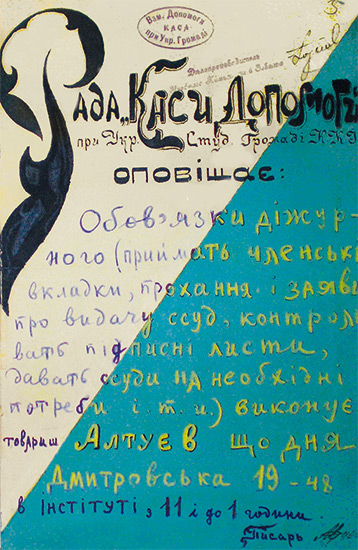 Взм. Допомоги
КАСА
при Укр. Громаді
Рада „Каси Допомоги
при Укр. Студ. Громаді К.К.
оповіщає:
Обов'язки діжур-
ного (приймать членські
вкладки, прохання і заяви
про видачу ссуд, контролю-
вать підписні листи,
давать ссуди на необхідні
потреби і. т. и) виконує
товариш Алтуєв що дня
Дмитровська 19 - 48
в Інституті з 11 і до 1 години.
Писарь